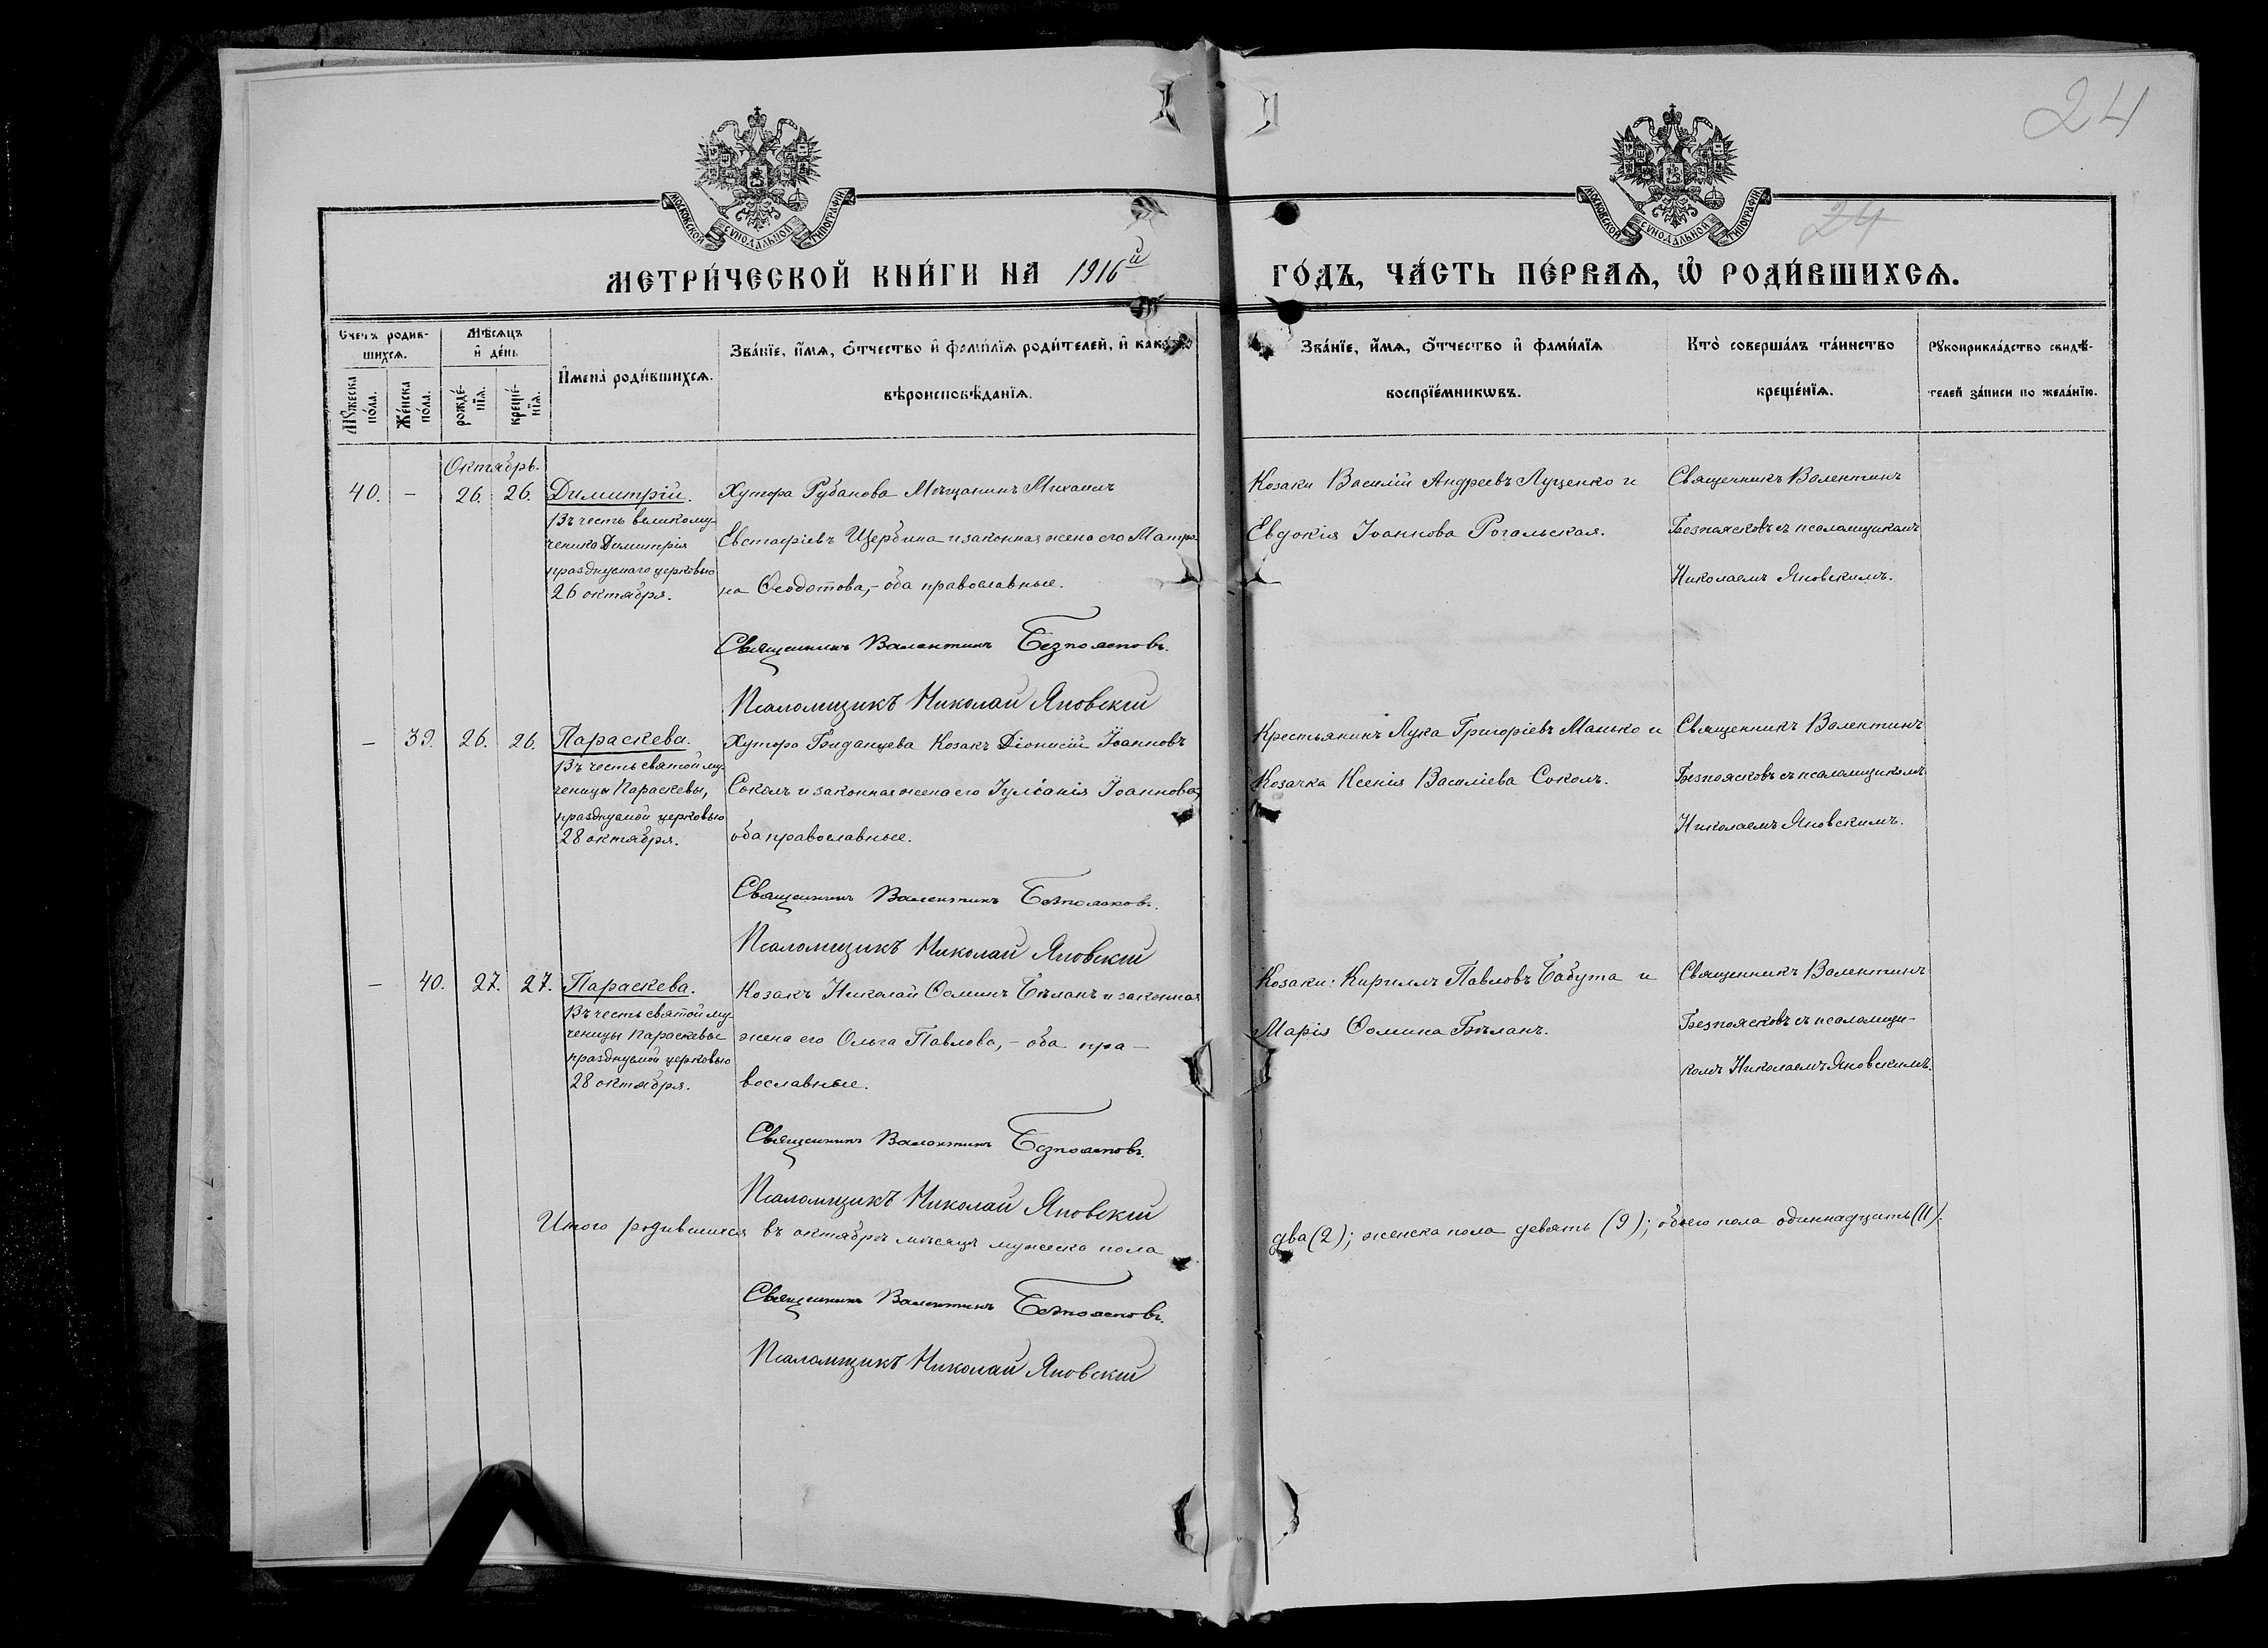 24
24
МОСКОВСКОЙ СѴНОДАЛЬНОЙ ТИПОГРАФІИ
МОСКОВСКОЙ СѴНОДАЛЬНОЙ ТИПОГРАФІИ
МЕТРИ́ЧЕСКОЙ КНИ́ГИ НА 1916й
ГО́ДЪ, ЧА́СТЬ ПЕ́РВАѦ, Ѡ҆ РОДИ́ВШИХСѦ.
Счетъ родив-
шихсѧ.
Мꙋжеска
по́ла.
Же́нска
по́ла.
Мѣ́сѧцъ
и҆ де́нь
рожде́-
нїѧ.
креще́-
нїѧ.
И҆мена̀ роди́вшихсѧ.
Зва́нїе, и҆́мѧ, ѻ҆́тчество и҆ фами́лїѧ роди́телей, и҆ како́гѡ
вѣроисповѣ́данїѧ.
Зва́нїе, и҆́мѧ, ѻ҆́тчество и҆ фами́лїѧ
воспрїе́мникѡвъ.
Кто̀ соверша́лъ та́инство
креще́нїѧ.
Рꙋкоприкла́дство свидѣ́-
телей за́писи по жела́нїю.
Октябрь.
40. – 26. 26. Димитрій.
Въ честь великому-
ченика Димитрія
празднуемаго церковью
26 октября.
Хутора Рубанова Мѣщанинъ Михаилъ
Евстафіевъ Щербина и законная жена его Матро-
на Ѳеодотова, – оба православные.
Священникъ Валентинъ Безпоясковъ.
Псаломщикъ Николай Яновскій
Козаки Василій Андреевъ Луценко и
Евдокія Іоаннова Рогальская.
Священникъ Валентинъ
Безпоясковъ съ псаломщикомъ
Николаемъ Яновскимъ.
– 39. 26. 26. Параскева.
Въ честь святой му-
ченицы Параскевы,
празднуемой церковью
28 октября.
Хутора Гриданцева Козакъ Діонисій Іоанновъ
Соколъ и законная жена его Іуліанія Іоаннова,
оба православные.
Священникъ Валентинъ Безпоясковъ.
Псаломщикъ Николай Яновскій
Крестьянинъ Лука Григоріевъ Манько и
Козачка Ксенія Василіева Соколъ.
Священникъ Валентинъ
Безпоясковъ съ псаломщикомъ
Николаемъ Яновскимъ.
– 40. 27. 27. Параскева.
Въ честь святой му-
ченицы Параскевы
празднуемой церковью
28 октября.
Козакъ Николай Ѳоминъ Бѣланъ и законная
жена его Ольга Павлова, – оба пра-
вославные.
Священникъ Валентинъ Безпоясковъ.
Псаломщикъ Николай Яновскій
Козаки: Кириллъ Павловъ Бабута и
Марія Ѳомина Бѣланъ.
Священникъ Валентинъ
Безпоясковъ съ псаломщи-
комъ Николаемъ Яновскимъ.
Итого родившихся въ октябрѣ мѣсяцѣ мужеска пола
два (2); женска пола девять (9); обоего пола одиннадцать (11).
Священникъ Валентинъ Безпоясковъ.
Псаломщикъ Николай Яновскій